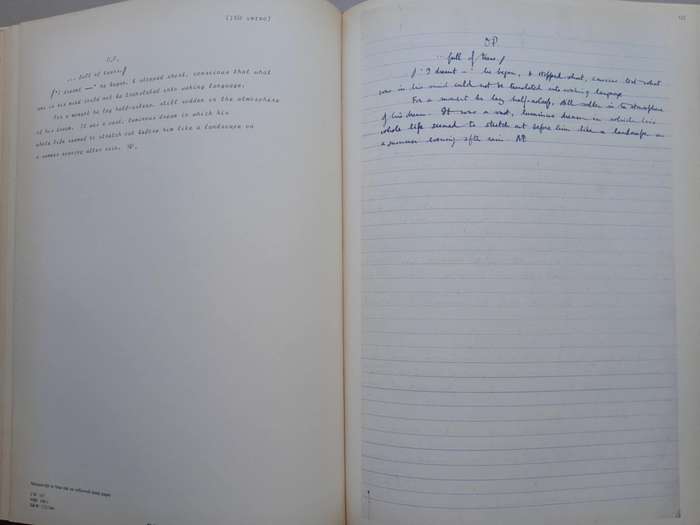 [150 verso]
O.P.
... full of tears/
/'I dreamt —' he began, & stopped short, conscious that what
was in his mind could not be translated into waking language.
For a moment he lay half-asleep, still sodden in the atmosphere
of his dream. It was a vast, luminous dream in which his
whole life seemed to stretch out before him like a landscape on
a summer evening after rain. NP.
Manuscript in blue ink on yellowed lined paper
OP
... full of tears/
/'I dreamt —' he began, & stopped short, conscious that what
was in his mind could not be translated into waking language.
For a moment he lay half-asleep, still sodden in the atmosphere
of his dream. It was a vast, luminous dream in which his
whole life seemed to stretch out before him like a landscape on
a summer evening after rain. NP.